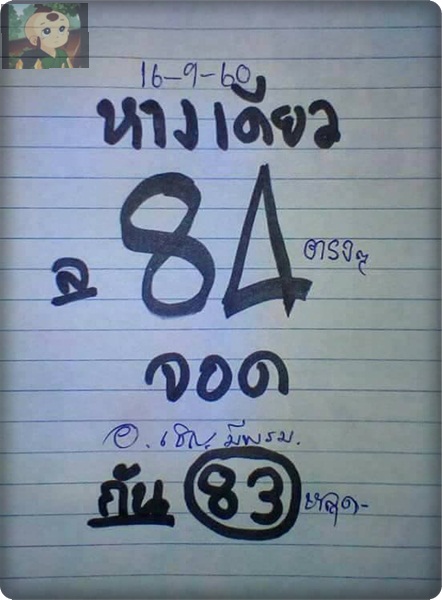 16-9-60
หางเดียว
ล 84 ตรงๆ
จอด
อ. เชิญ มีพรม.
กัน 83 หลุด-